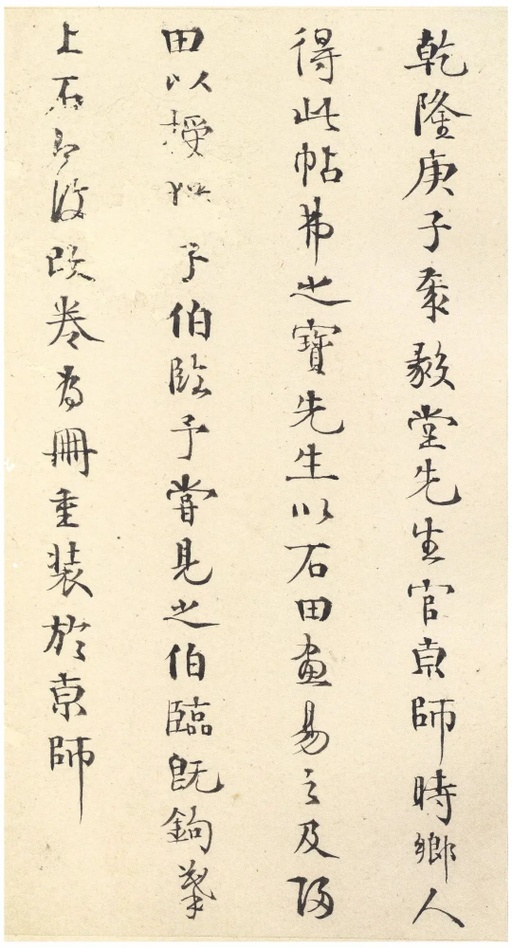 乾隆庚子秦毅堂先生官京師時鄉人
得此帖弗之寶先生以石田畫易之及歸
田以授似予伯臨予嘗見之伯臨既鉤摹
上石即復改卷為冊重裝於京師